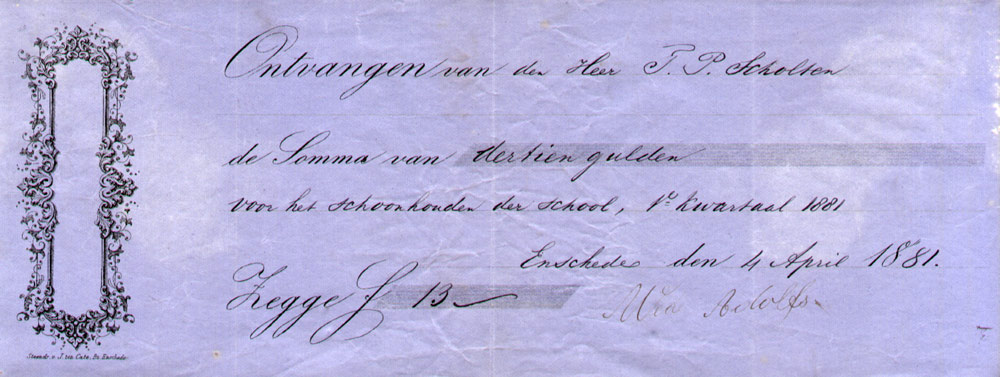 Ontvangen van den Heer T. P. Scholten
de Somma van dertien gulden
voor het schoonhouden der school, 1e kwartaal 1881
Enschede den 4 April 1881.
Zegge f 13
Adolfs
Steendr. v. J. ten Cate. Bz. Enschede.